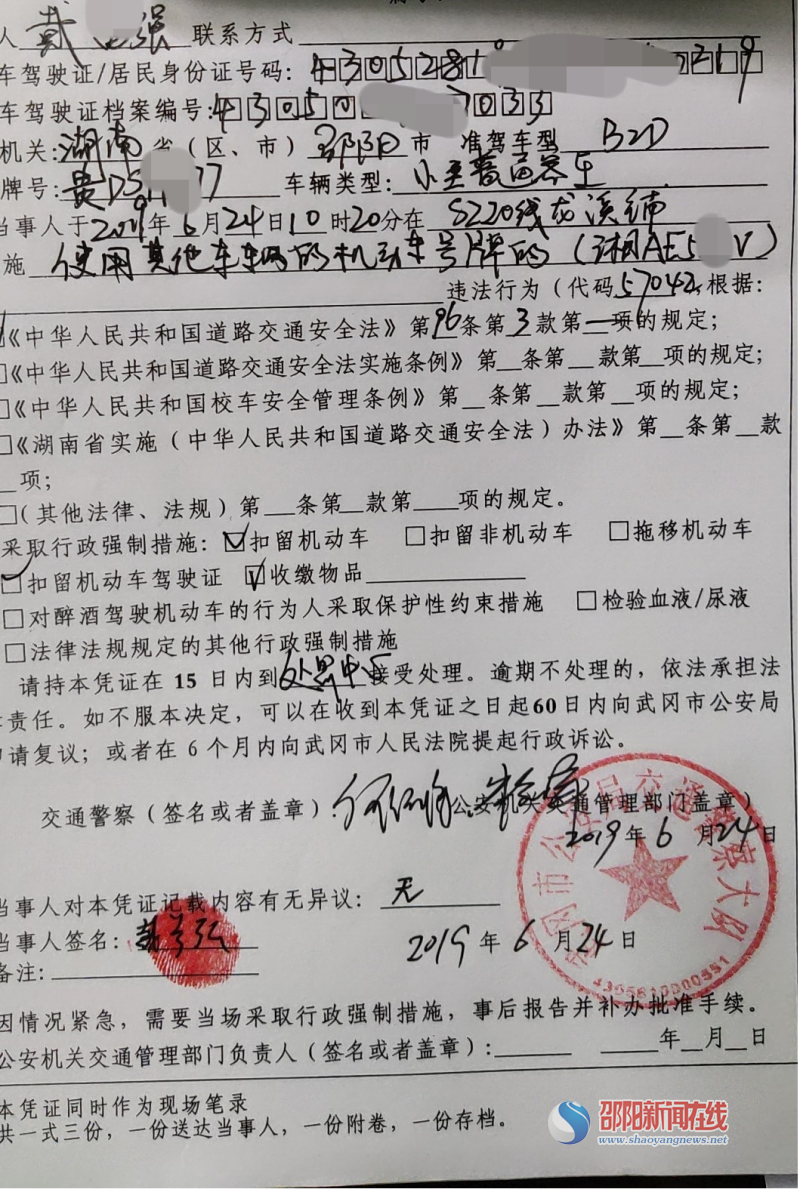 人 戴 强 联系方式
车驾驶证/居民身份证号码：430528 219
车驾驶证档案编号：43050 7033
机关：湖南省（区、市）邵阳市 准驾车型 B2D
牌号：贵D5 77 车辆类型：小型普通客车
当事人于2019年6月24日10时20分在 S220线龙溪铺
施 使用其他车辆的机动车号牌的（湘AE5 V）
违法行为（代码57042，根据：
《中华人民共和国道路交通安全法》第96条第3款第一项的规定；
□《中华人民共和国道路交通安全法实施条例》第__条第__款第__项的规定；
□《中华人民共和国校车安全管理条例》第__条第__款第__项的规定；
□《湖南省实施（中华人民共和国道路交通安全法）办法》第__条第__款
__项；
□（其他法律、法规）第__条第__款第___项的规定。
采取行政强制措施：☑扣留机动车 □扣留非机动车 □拖移机动车
☑扣留机动车驾驶证 ☑收缴物品__________
□对醉酒驾驶机动车的行为人采取保护性约束措施 □检验血液/尿液
□法律法规规定的其他行政强制措施
请持本凭证在 15 日内到处罚中心接受处理。逾期不处理的，依法承担法
律责任。如不服本决定，可以在收到本凭证之日起60日内向武冈市公安局
申请复议；或者在 6 个月内向武冈市人民法院提起行政诉讼。
交通警察（签名或者盖章）： 公安机关交通管理部门盖章）
2019年6月24日
武冈市公安局交通警察大队
4305810000551
当事人对本凭证记载内容有无异议：无
当事人签名：戴 强
2019年6月24日
备注：
因情况紧急，需要当场采取行政强制措施，事后报告并补办批准手续。
公安机关交通管理部门负责人（签名或者盖章）：_____ ____年__月__日
本凭证同时作为现场笔录
共一式三份，一份送达当事人，一份附卷，一份存档。
邵阳新闻在线
www.shaoyangnews.net